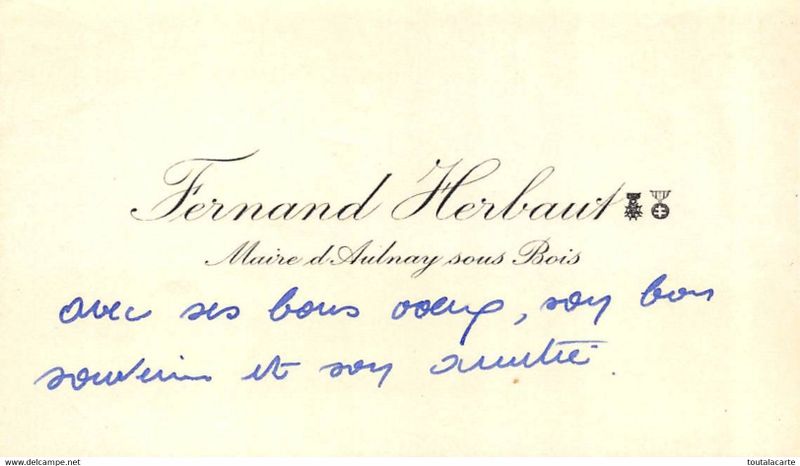 Fernand Herbaut
Maire d'Aulnay sous Bois
avec ses bons voeux, son bon
souvenir et son amitié.
https://www.delcampe.net
toutalacarte